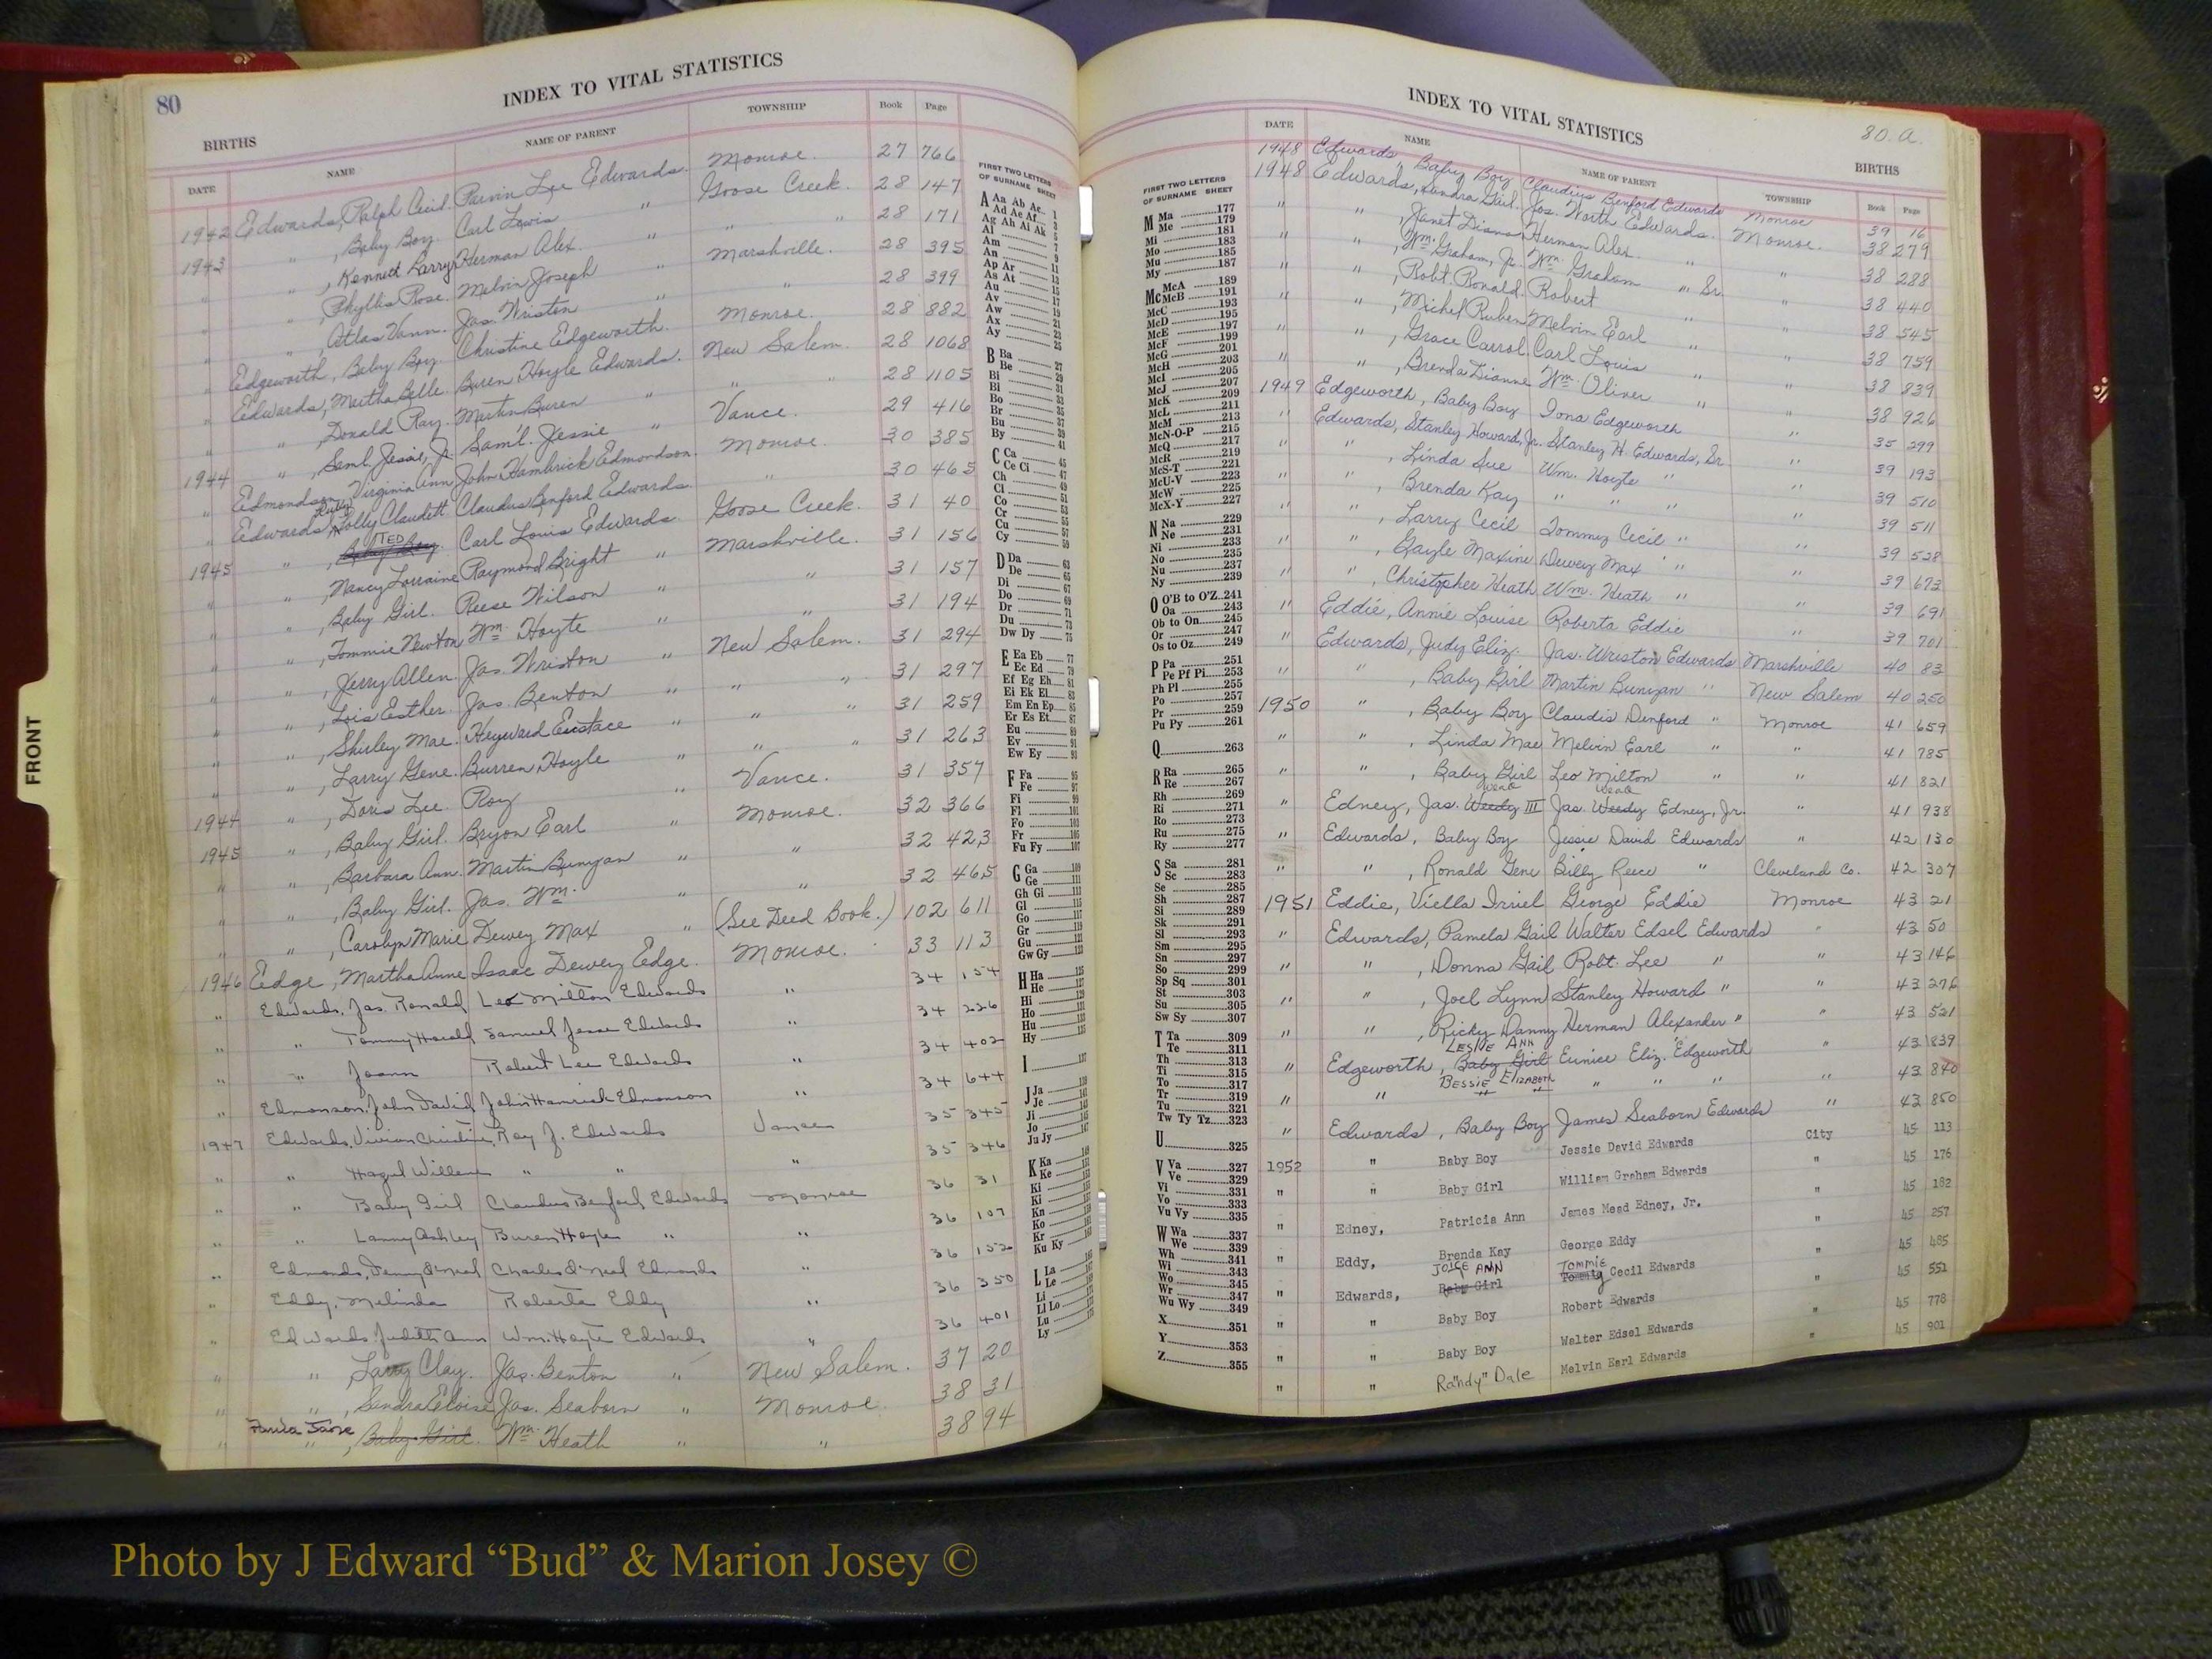 80
INDEX TO VITAL STATISTICS
BIRTHS
DATE NAME NAME OF PARENT TOWNSHIP Book Page
1942 Edwards, Ralph Cecil. Parvin Lee Edwards. Monroe. 27 766
1943 " , Baby Boy. Carl Lewis " Goose Creek. 28 147
" " , Kenneth Larry Herman Alex. " " " 28 171
" " , Phyllis Rose. Melvin Joseph " Marshville. 28 395
" " , Atlas Vann. Jas. Wriston " " 28 399
" Edgeworth, Baby Boy. Christine Edgeworth. Monroe. 28 882
" Edwards, Martha Belle. Buren Hoyle Edwards. New Salem. 28 1068
" " , Donald Ray. Martin Buren " " " 28 1105
" " , Saml. Jessie, Jr. Sam'l. Jessie " Vance. 29 416
1944 Edmondson, Virginia Ann John Hambrick Edmondson Monroe. 30 385
" Edwards, Dolly Claudett Claudus Benford Edwards. " 30 465
1945 " , Baby Boy. TED Carl Louis Edwards. Goose Creek. 31 40
" " , Nancy Lorraine Raymond Bright " Marshville. 31 156
" " , Baby Girl. Reese Wilson " " 31 157
" " , Tommie Newton Wm. Hoyte " " 31 194
" " , Jerry Allen. Jas. Wriston " New Salem. 31 294
" " , Lois Esther. Jas. Benton " " " 31 297
" " , Shirley Mae. Heyward Eustace " " " 31 259
" " , Larry Gene. Burren Hoyle " " " 31 263
1944 " , Doris Lee. Roy " Vance. 31 357
1945 " , Baby Girl. Bryon Earl " Monroe. 32 366
" " , Barbara Ann. Martin Bunyan " " 32 423
" " , Baby Girl. Jas. Wm. " " 32 465
" " , Carolyn Marie Dewey Max " (See Deed Book.) 102 611
1946 Edge, Martha Anne Isaac Dewey Edge. Monroe. 33 113
" Edwards, Jas. Ronald Leo Milton Edwards " 34 154
" " Tommy Harold Samuel Jesse Edwards " 34 226
" " Joann Robert Lee Edwards " 34 402
" Edmonson, John David John Hamrick Edmonson " 34 644
1947 Edwards, Vivian Christine Ray J. Edwards Vance 35 345
" " Hazel Willene " " " 35 346
" " Baby Girl Claudius Benford Edwards Monroe 36 31
" " Lanny Ashley Buren Hoyle " " 36 107
" Edmonds, Charles O'Neal Edmonds " 36 152
" Eddy, Melinda Roberta Eddy " 36 350
" Edwards, Judith Ann Wm. Hoyte Edwards " 36 401
" " Larry Clay. Jas. Benton " New Salem. 37 20
" " , Sandra Eloise Jas. Seaborn " Monroe. 38 31
" Paula Jane " , Baby Girl. Wm. Heath " " 38 94
FIRST TWO LETTERS
OF SURNAME SHEET
A Aa Ab Ac 1
Ad Ae Af 3
Ag Ah Ai Ak 5
Al 7
Am 9
An 11
Ap Ar 13
As At 15
Au 17
Av 19
Aw 21
Ax 23
Ay 25
B Ba 27
Be 29
Bi 31
Bl 33
Bo 35
Br 37
Bu 39
By 41
C Ca 45
Ce Ci 47
Ch 49
Cl 51
Co 53
Cr 55
Cu 57
Cy 59
D Da 63
De 65
Di 67
Do 69
Dr 71
Du 73
Dw Dy 75
E Ea Eb 77
Ec Ed 79
Ef Eg Eh 81
Ei Ek El 83
Em En Ep 85
Er Es Et 87
Eu 89
Ev 91
Ew Ey 93
F Fa 95
Fe 97
Fi 99
Fl 101
Fo 103
Fr 105
Fu Fy 107
G Ga 109
Ge 111
Gh Gi 113
Gl 115
Go 117
Gr 119
Gu 121
Gw Gy 123
H Ha 125
He 127
Hi 129
Ho 131
Hu 133
Hy 135
I 137
J Ja
Je
Ji
Jo
Ju Jy
K Ka
Ke
Ki
Kl
Kn
Ko
Kr
Ku Ky
L La
Le
Li
Ll Lo
Lu
Ly
INDEX TO VITAL STATISTICS
80. a.
BIRTHS
DATE NAME NAME OF PARENT TOWNSHIP Book Page
1948 Edwards, Baby Boy Claudius Benford Edwards Monroe 39 16
1948 Edwards, Sandra Girl. Jos. North Edwards. Monroe. 38 279
" " , Janet Diane Herman Alex. " " 38 288
" " , Wm. Graham, Jr. Wm. Graham " Sr. " 38 440
" " , Robt. Ronald. Robert " " 38 545
" " , Michel Ruben Melvin Earl " " 38 759
" " , Grace Carrol. Carl Louis " " 38 839
" " , Brenda Dianne Wm. Oliver " " 38 926
1949 Edgeworth, Baby Boy Iona Edgeworth " 35 299
" Edwards, Stanley Howard, Jr. Stanley H. Edwards, Sr. " 39 193
" " , Linda Sue Wm. Hoyte " " 39 510
" " , Brenda Kay " " " " 39 511
" " , Larry Cecil Tommy Cecil " " 39 528
" " , Gayle Maxine Dewey Max " " 39 673
" " , Christopher Heath Wm. Heath " " 39 691
" Eddie, Annie Louise Roberta Eddie " 39 701
" Edwards, Judy Eliz. Jas. Wriston Edwards Marshville 40 83
" " , Baby Girl Martin Bunyan " New Salem 40 250
1950 " , Baby Boy Claudis Denford " Monroe 41 659
" " , Linda Mae Melvin Earl " " 41 785
" " , Baby Girl Leo Milton " " 41 821
" Edney, Jas. Weedy III Jas. Weedy Edney, Jr. " 41 938
" Edwards, Baby Boy Jessie David Edwards " 42 130
" " , Ronald Gene Billy Reece " Cleveland Co. 42 307
1951 Eddie, Viella Irriel George Eddie Monroe 43 21
" Edwards, Pamela Gail Walter Edsel Edwards " 43 50
" " , Donna Gail Robt. Lee " " 43 146
" " , Joel Lynn Stanley Howard " " 43 276
" " , Ricky Danny Herman Alexander " " 43 521
LESLIE ANN
" Edgeworth, Baby Girl Eunice Eliz. Edgeworth " 43 839
" " BESSIE ELIZABETH " " " " 43 840
" Edwards, Baby Boy James Seaborn Edwards " 43 850
1952 " Baby Boy Jessie David Edwards City 45 113
" " Baby Girl William Graham Edwards " 45 176
" Edney, Patricia Ann James Mead Edney, Jr. " 45 182
" Eddy, Brenda Kay George Eddy " 45 257
JOICE ANN TOMMIE
" Edwards, Baby Girl Tommig Cecil Edwards " 45 485
" " Baby Boy Robert Edwards " 45 551
" " Baby Boy Walter Edsel Edwards " 45 778
" " Ra"ndy" Dale Melvin Earl Edwards " 45 901
FIRST TWO LETTERS
OF SURNAME SHEET
M Ma 177
Me 179
Mi 181
Mo 183
Mu 185
My 187
Mc McA 189
McB 191
McC 193
McD 195
McE 197
McF 199
McG 201
McH 203
McI 205
McJ 207
McK 209
McL 211
McM 213
McN-O-P 215
McQ 217
McR 219
McS-T 221
McU-V 223
McW 225
McX-Y 227
N Na 229
Ne 231
Ni 233
No 235
Nu 237
Ny 239
O O'B to O'Z 241
Oa 243
Ob to On 245
Or 247
Os to Oz 249
P Pa 251
Pe Pf Pi 253
Ph Pl 255
Po 257
Pr 259
Pu Py 261
Q 263
R Ra 265
Re 267
Rh 269
Ri 271
Ro 273
Ru 275
Ry 277
S Sa 281
Sc 283
Se 285
Sh 287
Si 289
Sk 291
Sl 293
Sm 295
Sn 297
So 299
Sp Sq 301
St 303
Su 305
Sw Sy 307
T Ta 309
Te 311
Th 313
Ti 315
To 317
Tr 319
Tu 321
Tw Ty Tz 323
U 325
V Va 327
Ve 329
Vi 331
Vo 333
Vu Vy 335
W Wa 337
We 339
Wh 341
Wi 343
Wo 345
Wr 347
Wu Wy 349
X 351
Y 353
Z 355
FRONT
Photo by J Edward “Bud” & Marion Josey ©